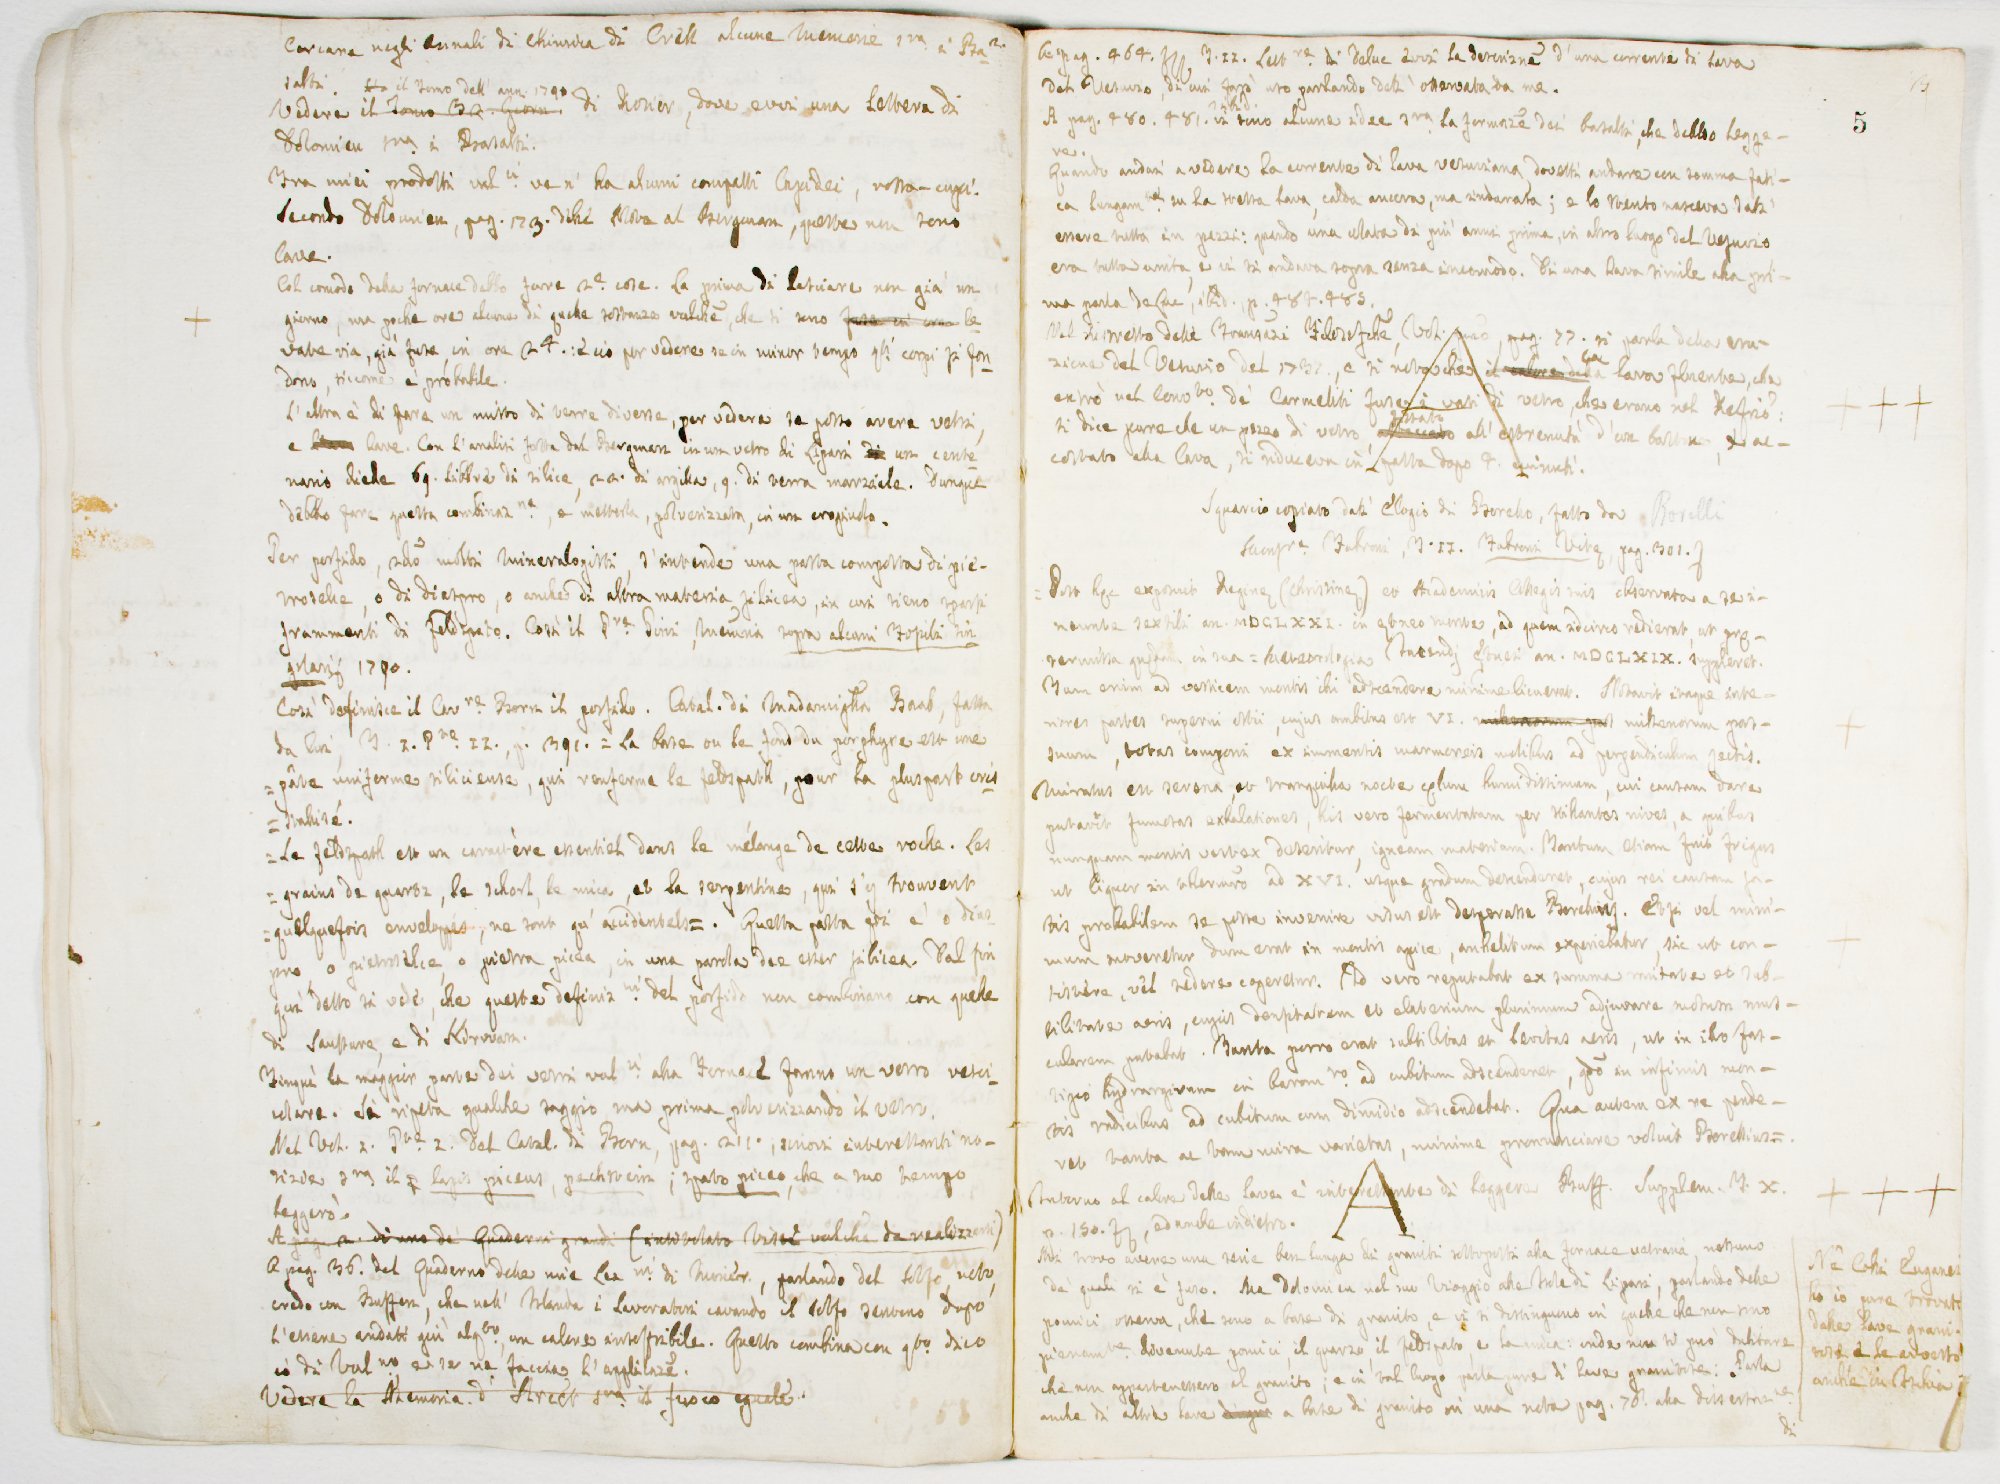 Cercare negli Annali di Chimica di Crell alcune Memorie sra i Ba-
salti.
il Tomo dell' ann. 1790
Vedere il Tomo di Rozier, dove evvi una Lettera di
Dolomieu sra i Basalti.
Tra miei prodotti vulci ve n' ha alcuni compatti lapidei, rosso-cupi.
Secondo Dolomieu, pag. 173. delle Note al Bergman, queste non sono
lave.
Col comodo della fornace debbo fare 2e cose. La prima di lasciare non già un
giorno, ma poche ore alcune di quelle sostanze vulche, che si sono le
vate via, già fuse, in ore 24.: e ciò per vedere se in minor tempo gli corpi si fon
dono, siccome è probabile.
L'altra è di fare un misto di terre diverse, per vedere se posso avere vetri,
e lave. Con l'analisi fatta dal Bergman in un vetro di Lipari un cente
nario diede 69. libbre di silice, 22. di argilla, 9. di terra marziale. Dunque
debbo fare questa combinazne, e metterla, polverizzata, in un crogiuolo.
Per porfido, sdo molti Mineralogisti, s'intende una pasta composta di pie-
troselce, o di diaspro, o anche di altra materia silicea, in cui sieno sparsi
frammenti di feldspato. Così il Pre Pini, Memoria sopra alcuni Fossili sin
golari 1790.
Così definisce il Cavre Born il porfido. Catal. di Madamigella Raab, fatto
da lui, T. I. Pne II, p. 391. = La base ou le fond du porphyre est une
= pâte uniforme siliceuse, qui renferme le feldspath, pour la pluspart cris
= tallisé.
= Le feldspath est un caractère essentiel dans le mélange de cette roche. Les
= grains de quartz, le schorl, le mica, et la serpentine, qui s'y trouvent
= quelquefois enveloppés, ne sont qu' accidentels=. Questa pasta poi è o dias
pro, o pietroselce, o pietra picea, in una parola dee esser silicea. Dal fin
qui detto si vede, che queste definizni del porfido non combinano con quelle
di Saussure, e di Kirwan.
Finquì la maggior parte dei vetri vulci alla Fornace fanno un vetro vesci-
colare. Si ripeta qualche saggio ma prima polverizzando il vetro.
Nel Vol. 2. Pne 2. del Catal. di Born, pag. 211. sonovi interessanti no-
tizie sra il lapis piceus, pechstein; spato piceo, che a suo tempo
leggerò.
A pag. 2. di uno de' Quaderni grandi (intitolato Viste vulche da realizzarsi)
A pag. 36. del Quaderno delle mie Lezni di Minier., parlando del solfo, noto,
credo con Buffon, che nell' Islanda i Lavoratori cavando il solfo sentono dopo
l'essere andati giù alqto, un calore insoffribile. Questo combina con qto dico
io di Vulno, e se ne faccia l'applicazne.
Vedere la Memoria d' sra il fuoco eguale.
5
be pag. 464. T. II. Lettre di Deluc evvi la descrizne d'una corrente di lava
del Vesuvio, di cui farò uso parlando della osservata da me.
A pag. 480. 481. ibid. vi sono alcune idee sra la formazne dei basalti, che debbo legge-
re.
Quando andai a vedere la corrente di lava vesuviana dovetti andare con somma fati-
ca lungamte su la stessa lava, calda ancora, ma indurata; e lo stento nasceva dall'
essere tutta in pezzi: quando una colata di più anni prima, in altro luogo del Vesuvio
era tutta unita, e vi si andava sopra senza incomodo. Di una lava simile alla pri-
ma parla Deluc, ibid. p. 484. 485.
Nel ristretto delle Transazni Filosofiche, Vol. pag. 77. si parla della eru-
zione del Vesuvio del 1737., e si nota che la lava fluente, che
entrò nel Convto de' Carmeliti fuse i vasi di vetro, che erano nel Refrio:
si dice pure che un pezzo di vetro, attaccato all'estremità d'un bastone, ac-
costato alla lava, si riduceva in pasta dopo 4. minuti.
Squarcio copiato dall' Elogio di Borello, fatto da Borelli
Fabroni, T. II. Fabroni Vitæ, pag. 301.
= Post hæc exposuit Reginæ (Christinæ) et Academiis Collegis suis observata a se i-
neunte sextili an. MDCLXXI. in Ætneo monte, ad quem idcirco redierat, ut præ-
termissa quædam in sua = Meteorologia Incendj Ætnei an. MDCLXIX. suppleret.
Tum enim ad verticem montis ibi adscendere minime licuerat. Notavit itaque inte-
riores partes superni ostii, cujus ambitus est VI. millenorum pas-
suum, totas componi ex immensis marmoreis molibus ad perpendiculum sectis.
Miratus est serena, et tranquilla nocte cœlum humidissimum, cui causam dare
putavit fumosas exhalationes, his vero fermentatam per stillantes nives, a quibus
nunquam montis vertex deseritur, igneam materiam. Tantum etiam fuit frigus
ut liquor in thermtro ad XVI. usque gradum descenderet, cujus rei causam sa-
tis probabilem se posse invenire visus est desperasse Borellius. Etsi vel mini-
mum moveretur dum erat in montis apice, anhelitum experiebatur, sic ut con-
sistere, vel sedere cogeretur. Id vero reputabat ex summa raritate et sub-
tilitate aeris, cujus densitatem et elaterium plurimum adjuvare motum mus-
cularem putabat. Tanta porro erat subtilitas et levitas aeris, ut in illo fas-
tigio hydrargirum in baromtro ad cubitum adscenderet, qdo in infimis mon-
tis radicibus ad cubitum cum dimidio adscendebat. Qua autem ex re pende-
ret tanta ac tam mira varietas, minime pronunciare voluit Borellius=.
Intorno al calore delle lave è interessante di leggere Buff. Supplem. T. X.
p. 150. ed anche indietro.
A
Mi trovo avere una serie ben lunga di graniti sottoposti alla fornace vetraria, nessuno
de' quali si è fuso. Ma Dolomieu nel suo Viaggio alle Isole di Lipari, parlando delle
pomici osserva, che sono a base di granito e vi si distinguono in quelle che non sono
pienamte divenute pomici, il quarzo il feldspato e la mica: onde non si può dubitare
che non appartenessero al granito; e in tal luogo parla pure di lave granitose. Parla
anche di altre lave a base di granito in una nota pag. 70. alla dissertazne
di
Ne' Colli Euganei
ho io pure trovate
delle lave grani-
tose e le avvertì
anche in Ischia